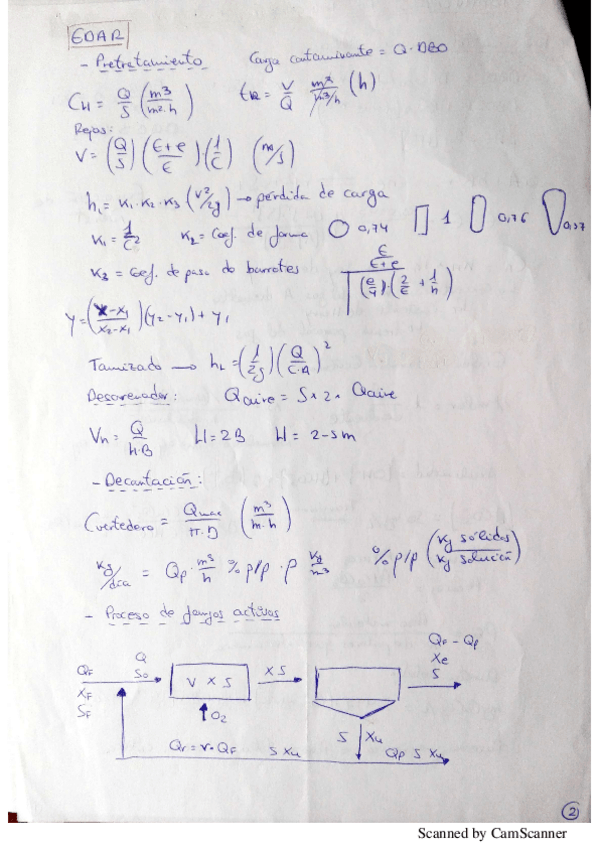 EDAR
- Pretratamiento Carga contaminante = Q · DBO
CH = Q/S (m³/m²·h) tR = V/Q m³/m³/h (h)
Rejas:
V = (Q/S) (E+e/E) (1/C) (m/s)
h₁ = K₁ · K₂ · K₃ (V²/2g) → pérdida de carga
K₁ = 1/C² K₂ = Coef. de forma 0,74 1 0,76 0,37
K₃ = Coef. de paso de barrotes E/E+e (e/4)·(2/E + 1/h)
y = (x-x₁/x₂-x₁)(y₂-y₁)+y₁
Tamizado → hL = (1/2g) (Q/C·A)²
Desarenador: Qaire = S × 2 × Qaire
Vh = Q/h·B L = 2B H = 2-5m
- Decantación:
Cvertedero = Qmax/π·D (m³/m·h)
kg/día = Qp · m³/h %p/p · ρ kg/m³ %p/p (kg sólidos/kg solución)
- Proceso de fangos activos
QF - Qp
Xe
S
QF
XF
SF
Q
So
V X S
X S
O₂
S Xu
Qr = r · QF S Xu Qp S Xu
2
Scanned by CamScanner